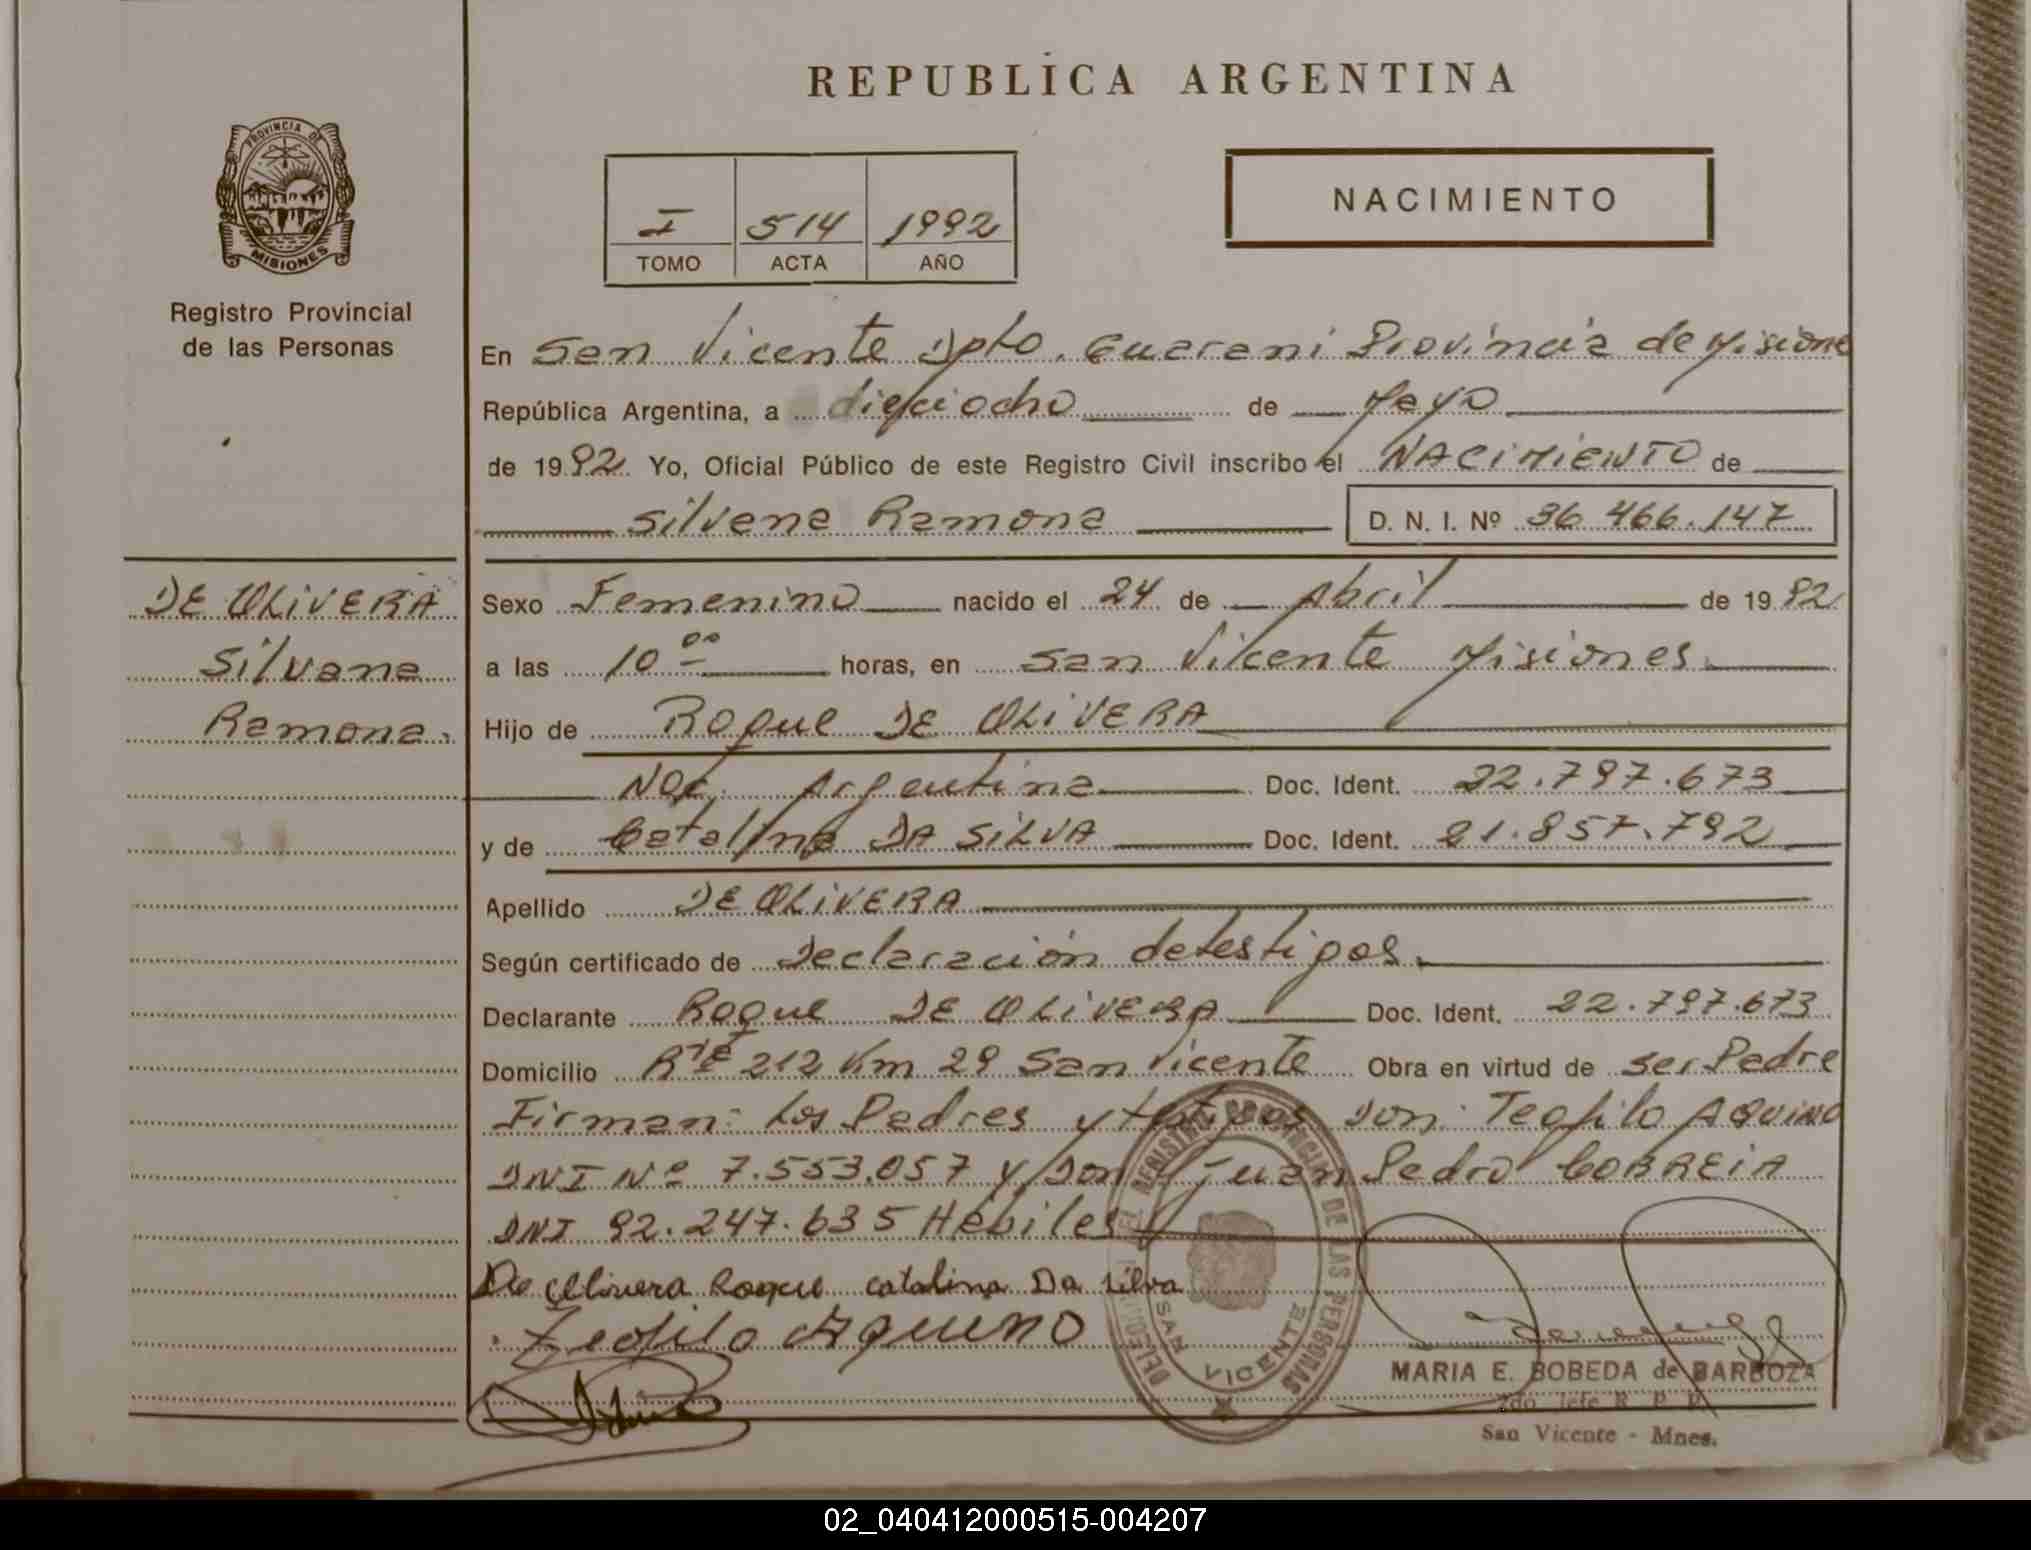 REPUBLICA ARGENTINA
PROVINCIA DE
MISIONES
Registro Provincial
de las Personas
I 514 1992
TOMO ACTA AÑO
NACIMIENTO
En San Vicente Dpto. Guarani Provincia de Misiones
República Argentina, a dieciocho de Mayo
de 1992. Yo, Oficial Público de este Registro Civil inscribo el NACIMIENTO de
Silvana Ramona D. N. I. Nº 36.466.147
DE OLIVERA
Silvana
Ramona.
Sexo Femenino nacido el 24 de Abril de 1992
a las 10 00 horas, en San Vicente Misiones
Hijo de Roque DE OLIVERA
Nac. Argentina Doc. Ident. 22.797.673
y de Catalina DA SILVA Doc. Ident. 21.857.792
Apellido DE OLIVERA
Según certificado de Declaración de testigos.
Declarante Roque DE OLIVERA Doc. Ident. 22.797.673
Domicilio Rta 212 Km 29 San Vicente Obra en virtud de ser Padre
Firman: Los Padres y testigos Don: Teofilo AQUINO
DNI Nº 7.553.057 y Don Juan Pedro CORREIA
DNI 92.247.635 Hábiles
De Olivera Roque Catalina Da Silva
Teofilo Aquino
DEL REGISTRO PROVINCIAL DE LAS PERSONAS
SAN VICENTE
MARIA E. BOBEDA de BARBOZA
2do Jefe R. P. P.
San Vicente - Mnes.
02_040412000515-004207